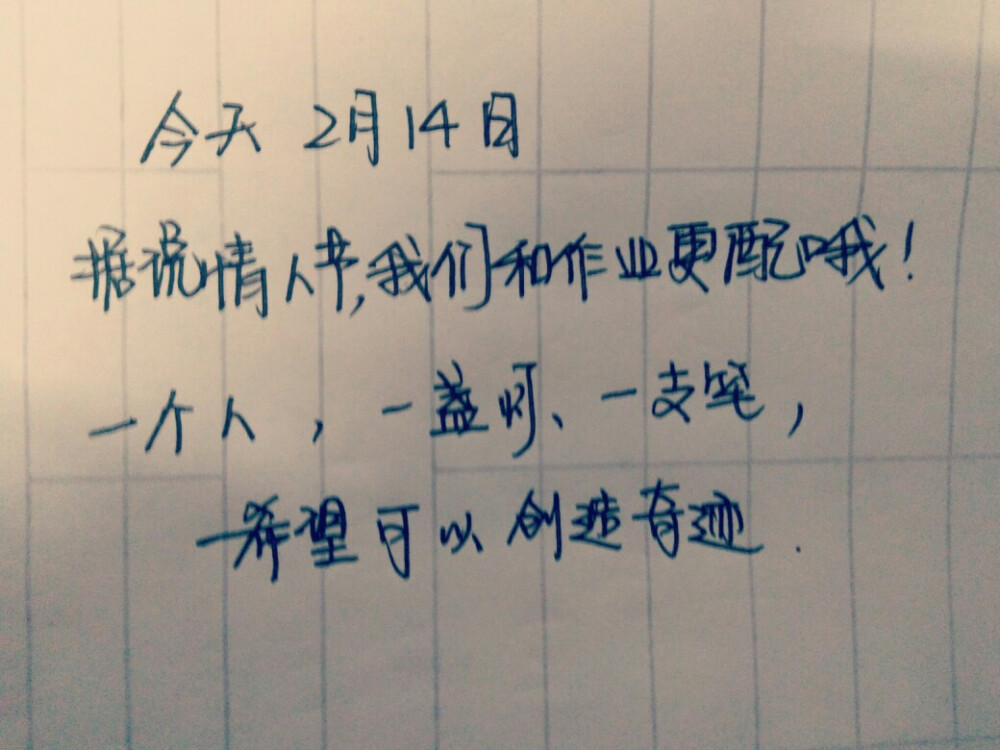 今天 2月14日
据说情人节,我们和作业更配哦!
一个人,一盏灯、一支笔,
一希望可以创造奇迹.